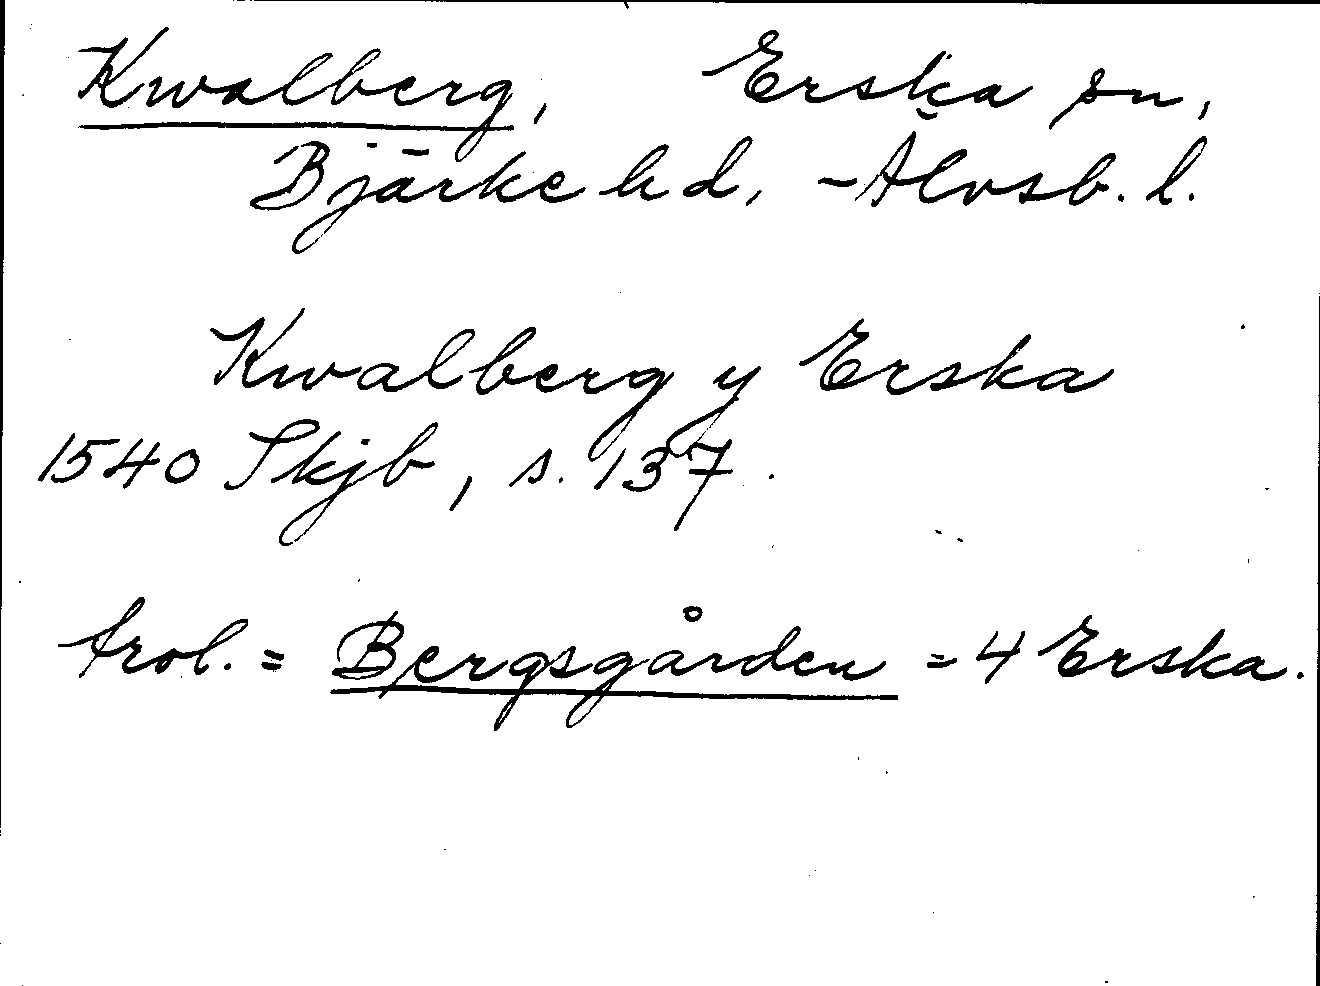 Kwalberg, Erska sn,
Bjärke hd, Älvsb. l.
Kwalberg y Erska
1540 Skjb, s. 137.
trol. = Bergsgården = 4 Erska.